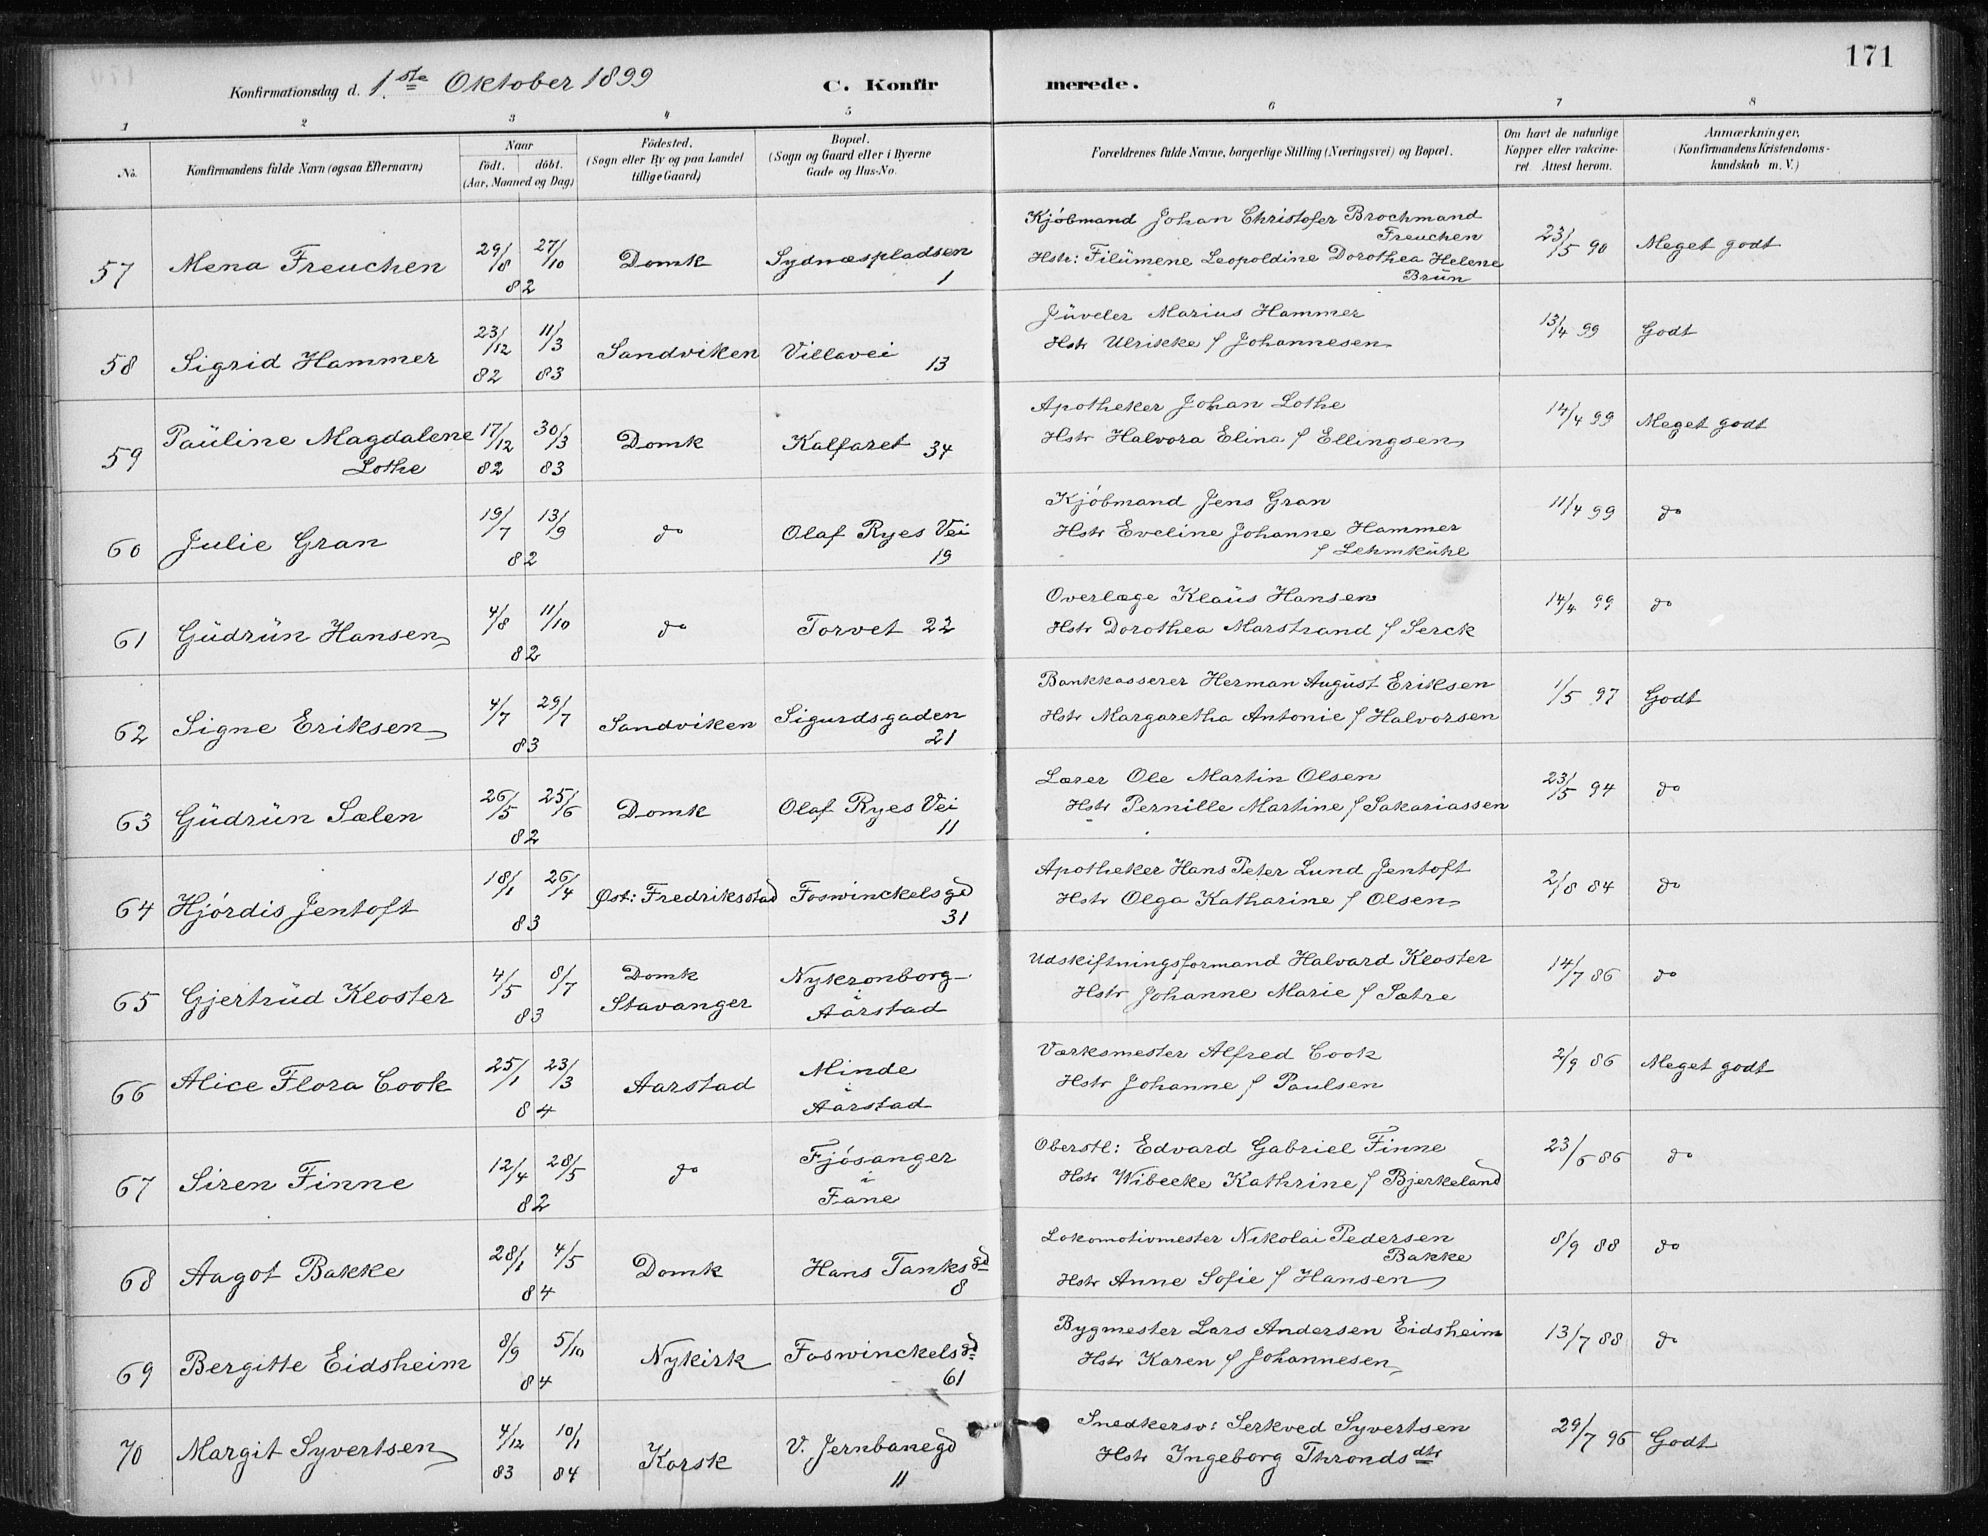 171
Konfirmationsdag d. 1.ste Oktober 1899
C. Konfirmerede.
1 2 3 4 5 6 7 8
No. Konfirmandens fulde Navn (ogsaa Efternavn) Naar födt. döbt. (Aar, Maaned og Dag) Födested. (Sogn eller By og paa Landet tillige Gaard) Bopæl. (Sogn og Gaard eller i Byerne Gade og Hus-No. Forældrenes fulde Navne, borgerlige Stilling (Næringsvei) og Bopæl. Om havt de naturlige Kopper eller vakcineret. Attest herom. Anmærkninger. (Konfirmandens Kristendomskundskab m. V.)
57 Mena Freuchen 29/8 27/10 82 Domk Sydnæspladsen 1 Kjöbmand Johan Christofer Brochmand Freuchen
Hstr: Filümene Leopoldine Dorothea Helene Brün 23/5 90 Meget godt
58 Sigrid Hammer 23/12 82 11/3 83 Sandviken Villavei 13 Jüveler Marius Hammer
Hstr Ulrikke f Johannesen 13/4 99 Godt
59 Paüline Magdalene Lothe 17/12 82 30/3 83 Domk Kalfaret 34 Apotheker Johan Lothe
Hstr Halvora Elina f Ellingsen 14/4 99 Meget godt
60 Julie Gran 19/7 13/9 82 do Olaf Ryes Vei 19 Kjöbmand Jens Gran
Hstr Eveline Johanne Hammer f Lehmkühl 11/4 99 do
61 Güdrün Hansen 4/8 11/10 82 do Torvet 22 Overlæge Klaüs Hansen
Hstr Dorothea Marstrand f Serck 14/4 99 do
62 Signe Eriksen 4/7 29/7 83 Sandviken Sigurdsgaden 21 Bankkasserer Herman August Eriksen
Hstr Margaretha Antonie f Halvorsen 1/5 97 Godt
63 Güdrün Sælen 26/5 25/6 82 Domk Olaf Ryes Vei 11 Lærer Ole Martin Olsen
Hstr Pernille Martine f Sakariassen 23/5 94 do
64 Hjördis Jentoft 18/1 26/4 83 Øst: Fredriksstad Foswinckelsgd 31 Apotheker Hans Peter Lund Jentoft
Hstr Olga Katharine f Olsen 2/8 84 do
65 Gjertrüd Kloster 4/5 8/7 83 Domk Stavanger Nykronborg i Aarstad Udskiftningsformand Halvard Kloster
Hstr Johanne Marie f Sætre 14/7 86 do
66 Alice Flora Cook 25/1 23/3 84 Aarstad Minde i Aarstad Værksmester Alfred Cook
Hstr Johanne f Paulsen 2/9 86 Meget godt
67 Siren Finne 12/4 28/5 82 do Fjösanger i Fane Oberstl: Edvard Gabriel Finne
Hstr Wibecke Kathrine f Bjerkeland 23/6 86 do
68 Aagot Bakke 28/1 4/5 84 Domk Hans Tanksgd 8 Lokomotivmester Nikolai Pedersen Bakke
Hstr Anne Sofie f Hansen 8/9 88 do
69 Bergitte Eidsheim 8/9 5/10 84 Nykirk Foswinckelsgd 61 Bygmester Lars Andersen Eidsheim
Hstr Karen f Johannesen 13/7 88 do
70 Margit Syvertsen 4/12 83 10/1 84 Korsk V. Jernbanegd 11 Snedkersv: Serkved Syvertsen
Hstr Ingeborg Throndsdtr 29/7 96 Godt